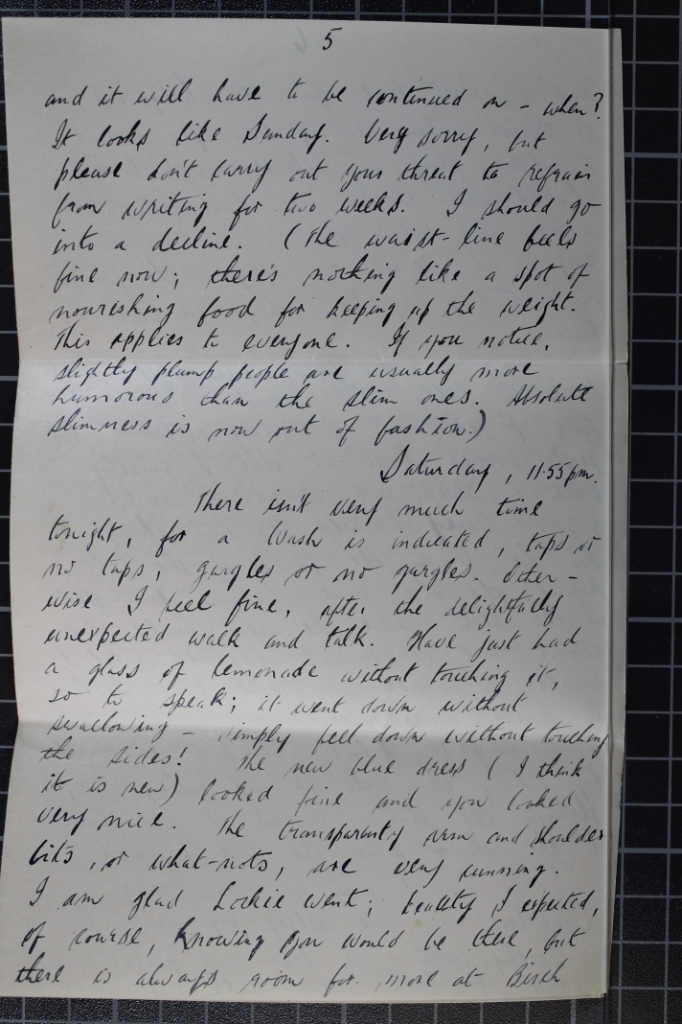 5
and it will have to be continued on - when?
It looks like Sunday. Very sorry, but
please don't carry out your threat to refrain
from writing for two weeks. I should go
into a decline. (The waist-line feels
fine now; there's nothing like a spot of
nourishing food for keeping up the weight.
This applies to everyone. If you notice,
slightly plump people are usually more
humorous than the slim ones. Absolute
slimness is now out of fashion.)
Saturday, 11.55pm.
There isn't very much time
tonight, for a wash is indicated, taps or
no taps, gargles or no gargles. Other-
wise I feel fine, after the delightfully
unexpected walk and talk. Have just had
a glass of lemonade without touching it,
so to speak; it went down without
swallowing - simply fell down without touching
the sides! The new blue dress (I think
it is new) looked fine and you looked
very nice. The transparent arm and shoulder
bits, or what-nots, are very cunning.
I am glad Lockie went; beauty I expected,
of course, knowing you would be there, but
there is always room for more at Birch